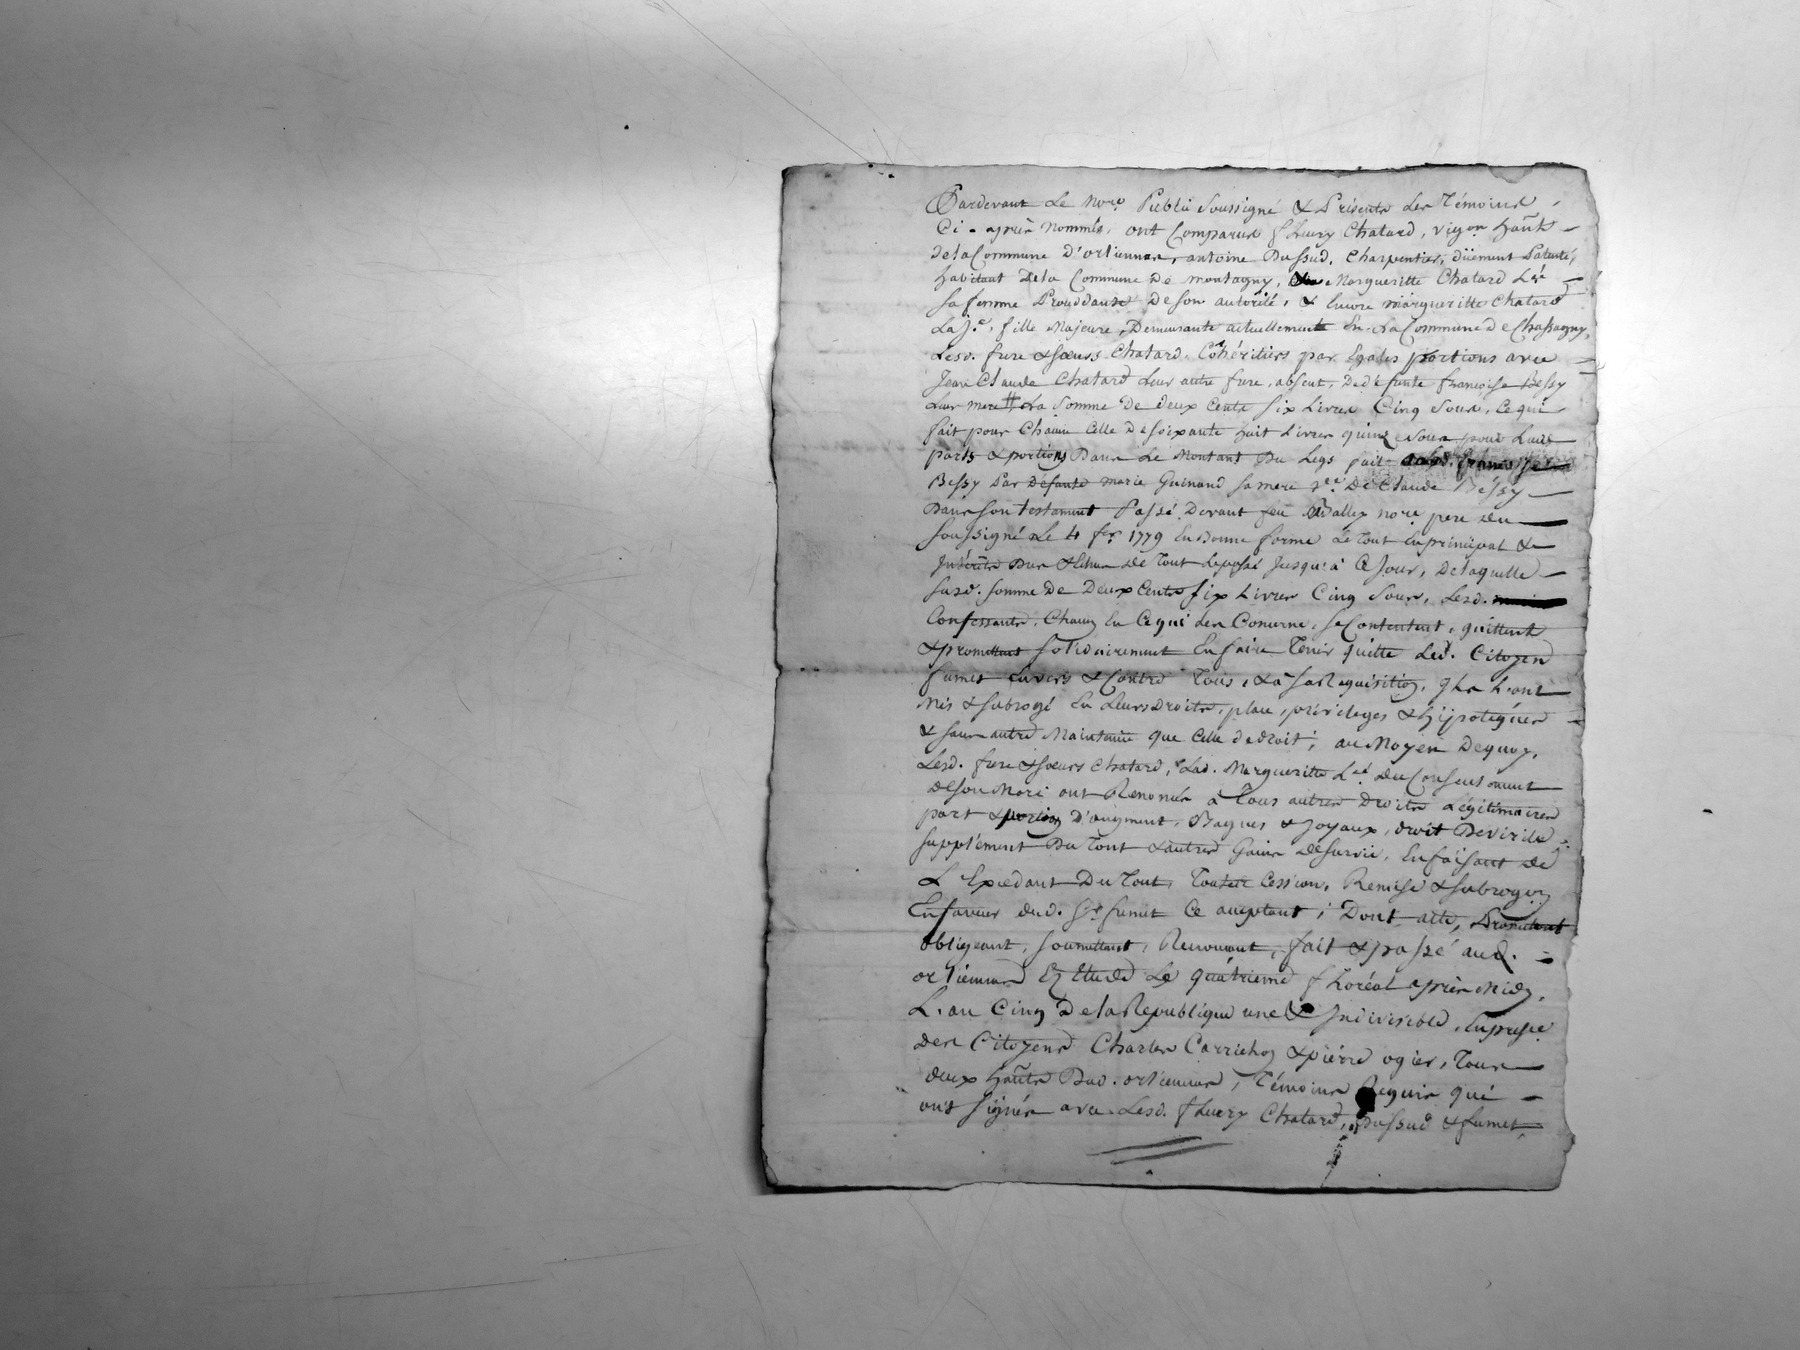 Pardevant Le Nore. Public Soussigné & Présents des Témoins
Ci-après Nommés, ont Comparus fleury Chatard, vigon hants
de la Commune d'orlienas, antoine Dussud, Charpentier, düement Patenté,
habitant De la Commune De montagny, Margueritte Chatard L'é
sa femme Procédante De son autorité, & Encore margueritte Chatard
La Je. fille Majeure, Demeurante actuellement En La Commune De Chassagny,
Lesd. frere & Sœurs Chatard. Cohéritiers par Egales portions avec
Jean Claude Chatard Leur autre frere, absent, De Défunte françoise Bessy
Leur mere # La Somme De deux Cents Six Livres Cinq Sous, Ce qui
fait pour Chacun Celle De soixante huit Livres quinze Sous pour Leurs
parts & portions Dans Le Montant Du Legs fait a lad. françoise
Bessy Par Défunte marie Guinand sa mere ve. De Claude Béssy
Dans son testament Passé Devant feu Dallex nore. pere du
Soussigné Le 4 fer. 1779 En Bonne forme Le Tout En principal &
Intérêts Dus & Echus De Tout Le passé Jusqu'à Ce Jour, De laquelle
susd. somme De Deux Cents Six Livres Cinq Sous, Lesd.
Confessants, Chacun En Ce qui Les Concerne, se Contentent, quittent
& promettent Solidairement En faire Tenir quitte Led. Citoyen
fumet Envers & Contre Tous, & à Sa Requisition, qu'ils L'ont
Mis & Subrogé En Leurs Droits, place, privileges & hÿpoteques
& sans autre Maintenue que Celle de droit; au Moyen De quoy,
Lesd. frere & sœurs Chatard, Lad. Margueritte L'é Du Consentement
De son Mari ont Renoncés à Tous autres Droits Légitimaires
part & portion D'augment, Bagues & Joyaux, droit De virile
supplément Du Tout & autres Gains De Survie, En faisant de
L'Excedant Du Tout, Toutte Cession, Remise & subrogon
En faveur dud. Cn. fumet Ce acceptant; Dont acte, Promettant
obligeant, Soumettant, Renonçant, fait & passé aud.
orlienas En Etude Le quatrieme floréal après Midy,
L'an Cinq De la Republique une & Indivisible, En presce
des Citoyens Charles Carrichon & piérre ogier, Tous
deux hants Dud. orlienas, Témoins Requis qui
ont Signés avec Lesd. fleury Chatard, Dussud & fumet,